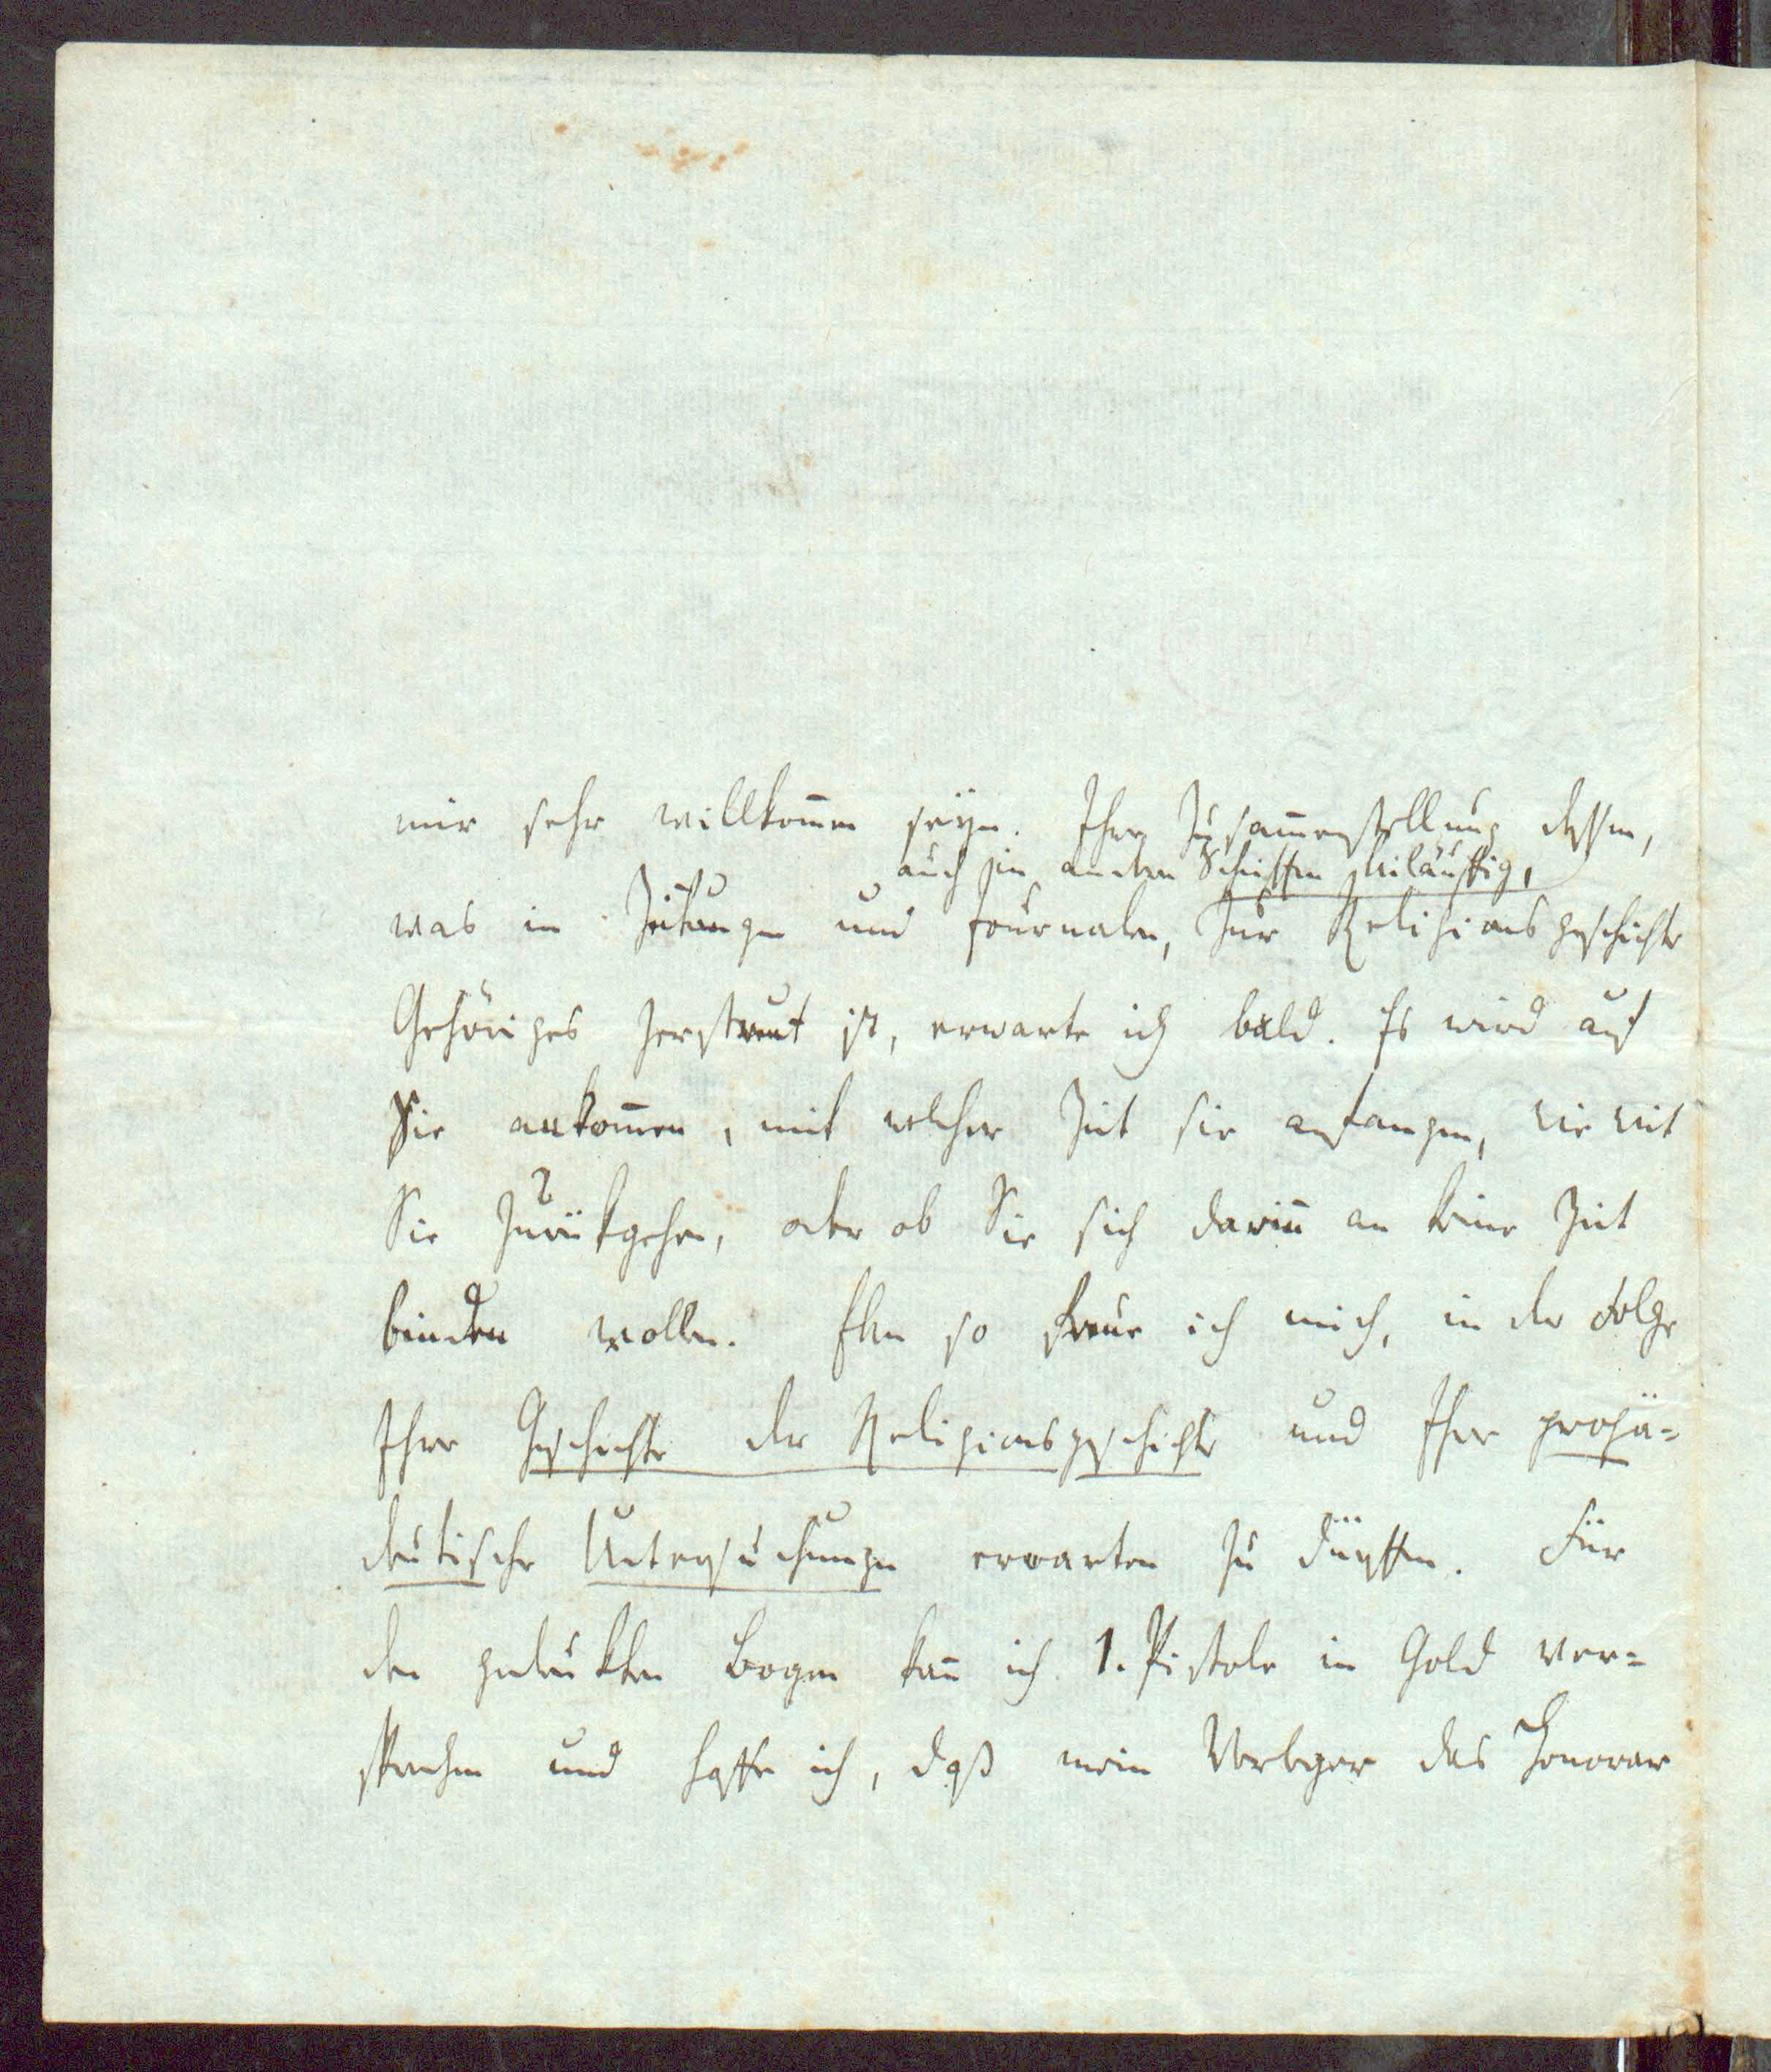 mir sehr willkom̅en seyn. Ihre Zusam̅enstellung dessen,
auch in andern Schriften beiläuffig,
was in Zeitungen und Journalen, zur Religionsgeschichte
Gehöriges zerstreut ist, erwarte ich bald. Es wird auf
Sie ankom̅en, mit welcher Zeit sie anfangen, wie weit
Sie zurükgehen, oder ob Sie sich darin̅ an keine Zeit
binden wollen. Eben so freue ich mich, in der Folge
Ihre Geschichte der Religionsgeschichte und Ihre propä=
deutische Untersuchungen erwarten zu dürffen. Für
den gedrukten Bogen kan̅ ich 1. Pistole in Gold ver=
sprechen und hoffe ich, daß mein Verleger das Honorar